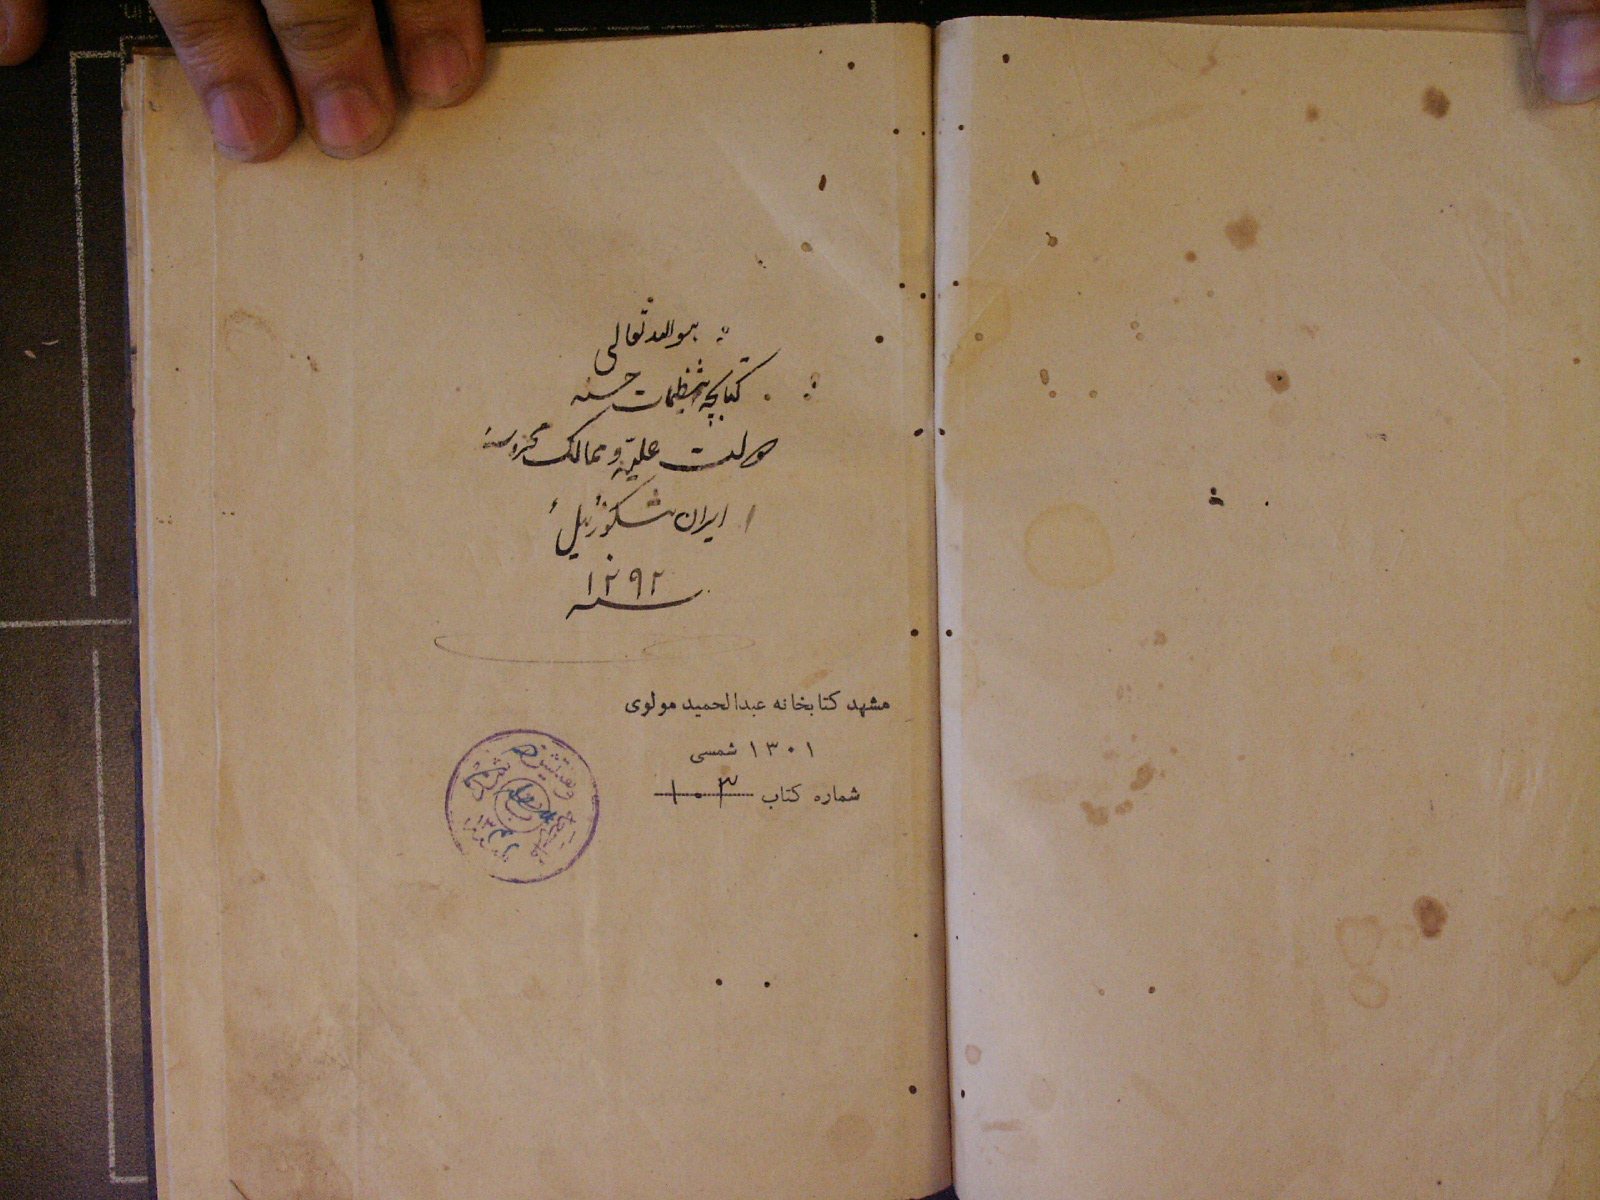 هو الله تعالی
کتابچه تنظیمات حسنه
دولت علیه و ممالک محروسه
ایران
۱۲۹۲
سنه
مشهد کتابخانه عبدالحمید مولوی
۱۳۰۱ شمسی
شماره کتاب ۱۰۳